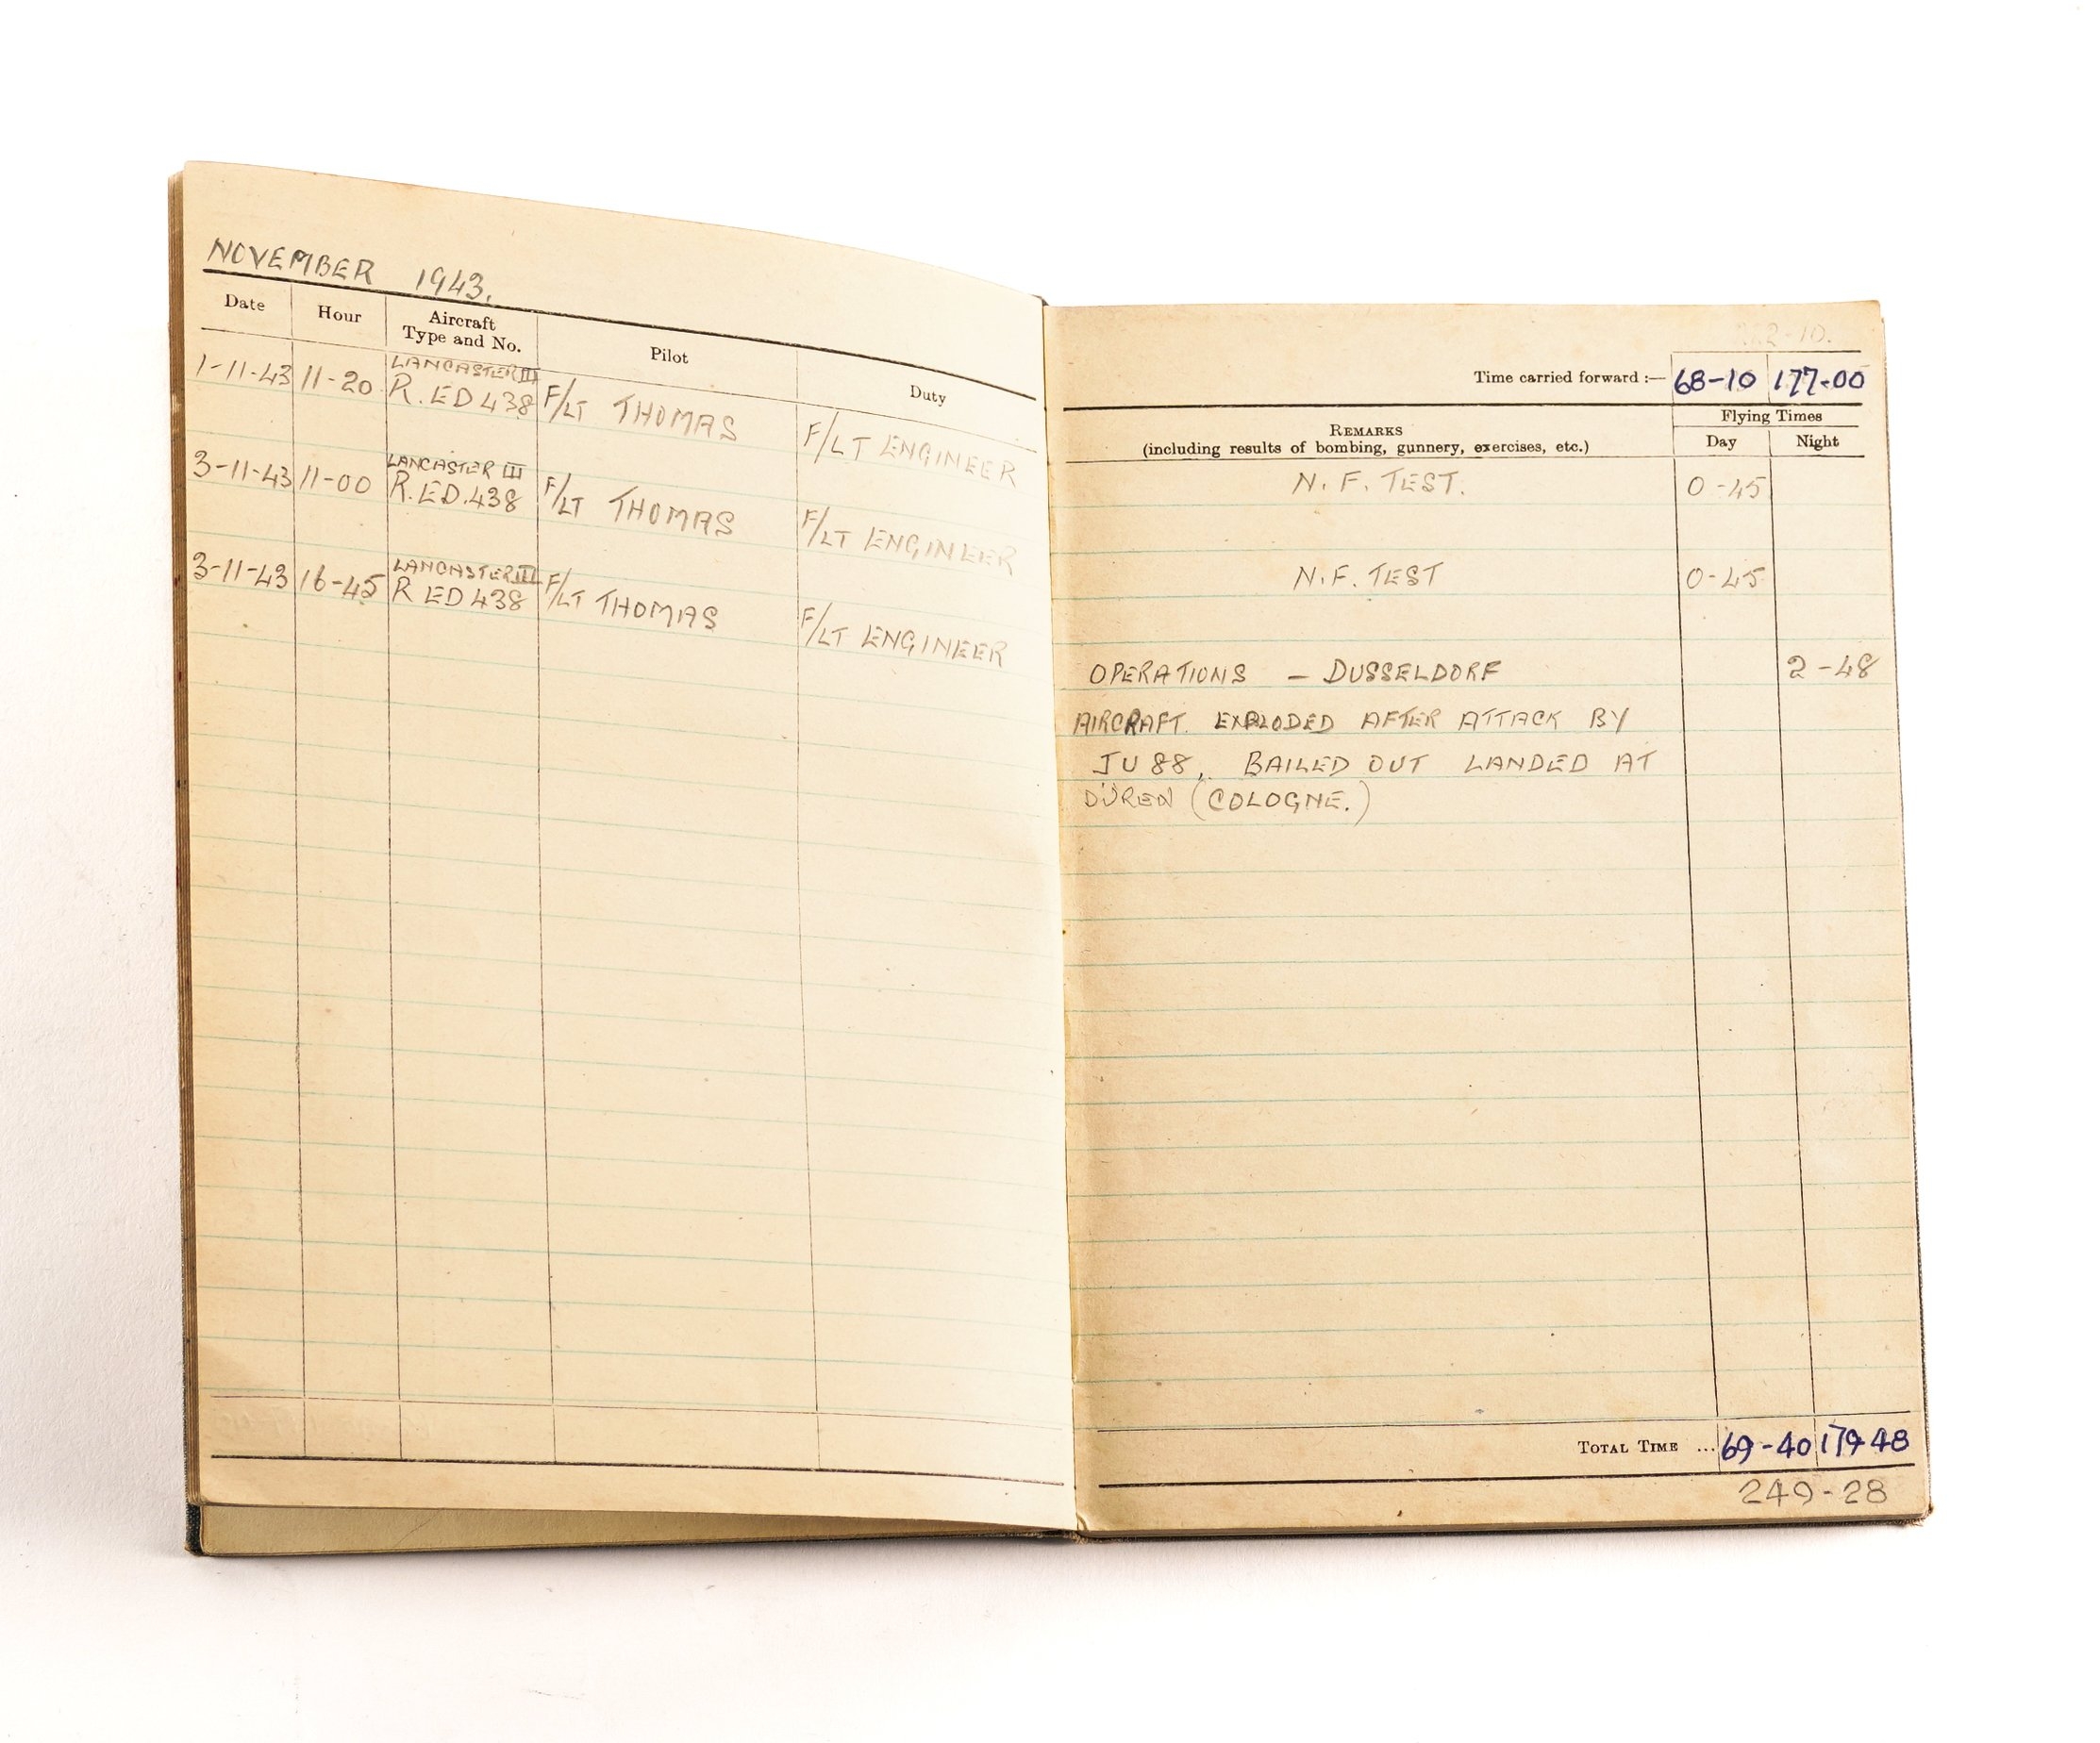 NOVEMBER 1943.
Date Hour Aircraft Type and No. Pilot Duty
1-11-43 11-20 LANCASTER III R. ED 438 F/LT THOMAS F/LT ENGINEER
3-11-43 11-00 LANCASTER III R. ED. 438 F/LT THOMAS F/LT ENGINEER
3-11-43 16-45 LANCASTER III R ED 438 F/LT THOMAS F/LT ENGINEER
Time carried forward :— 68-10 177-00
REMARKS
(including results of bombing, gunnery, exercises, etc.)
Flying Times
Day Night
N. F. TEST. 0-45
N.F. TEST 0-45
OPERATIONS — DUSSELDORF 2-48
AIRCRAFT. EXPLODED AFTER ATTACK BY
JU 88, BAILED OUT LANDED AT
DÜREN (COLOGNE.)
TOTAL TIME ... 69-40 179 48
249-28